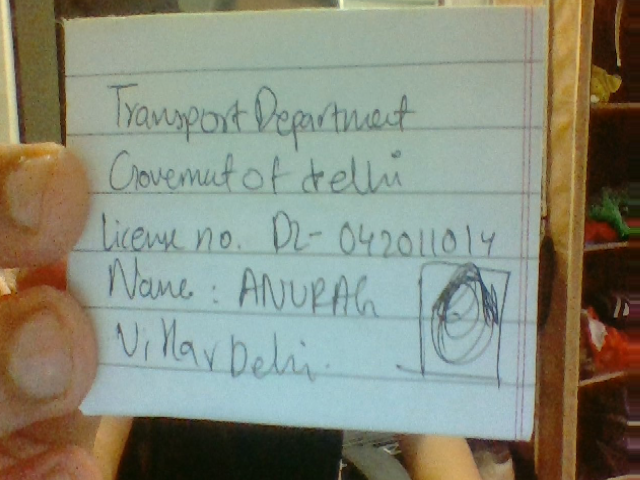 Transport Department
Government of delhi
License no. DL-042011014
Name: ANURAG
Delhi.